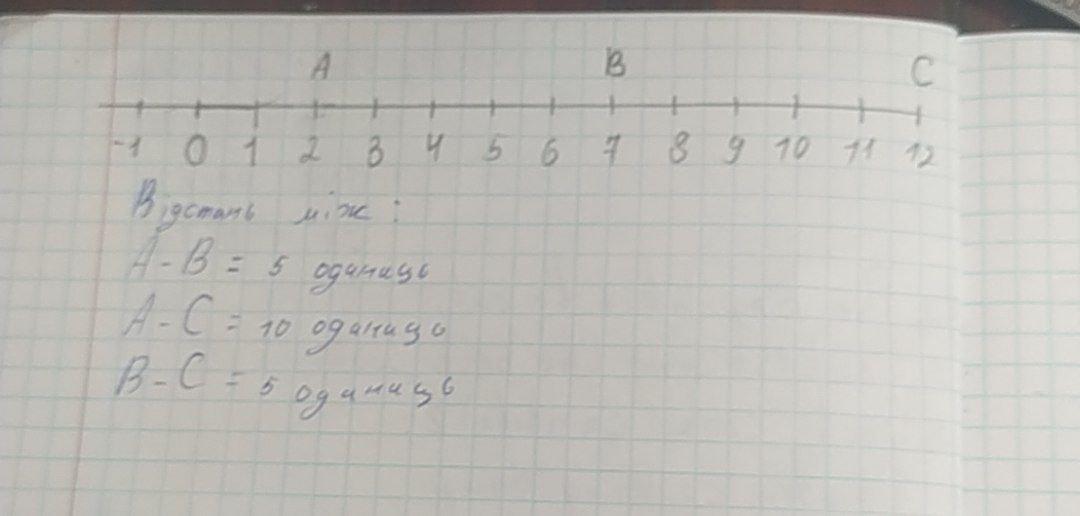 A B C
-1 0 1 2 3 4 5 6 7 8 9 10 11 12
Відстань між:
A-B = 5 одиниць
A-C = 10 одиниць
B-C = 5 одиниць